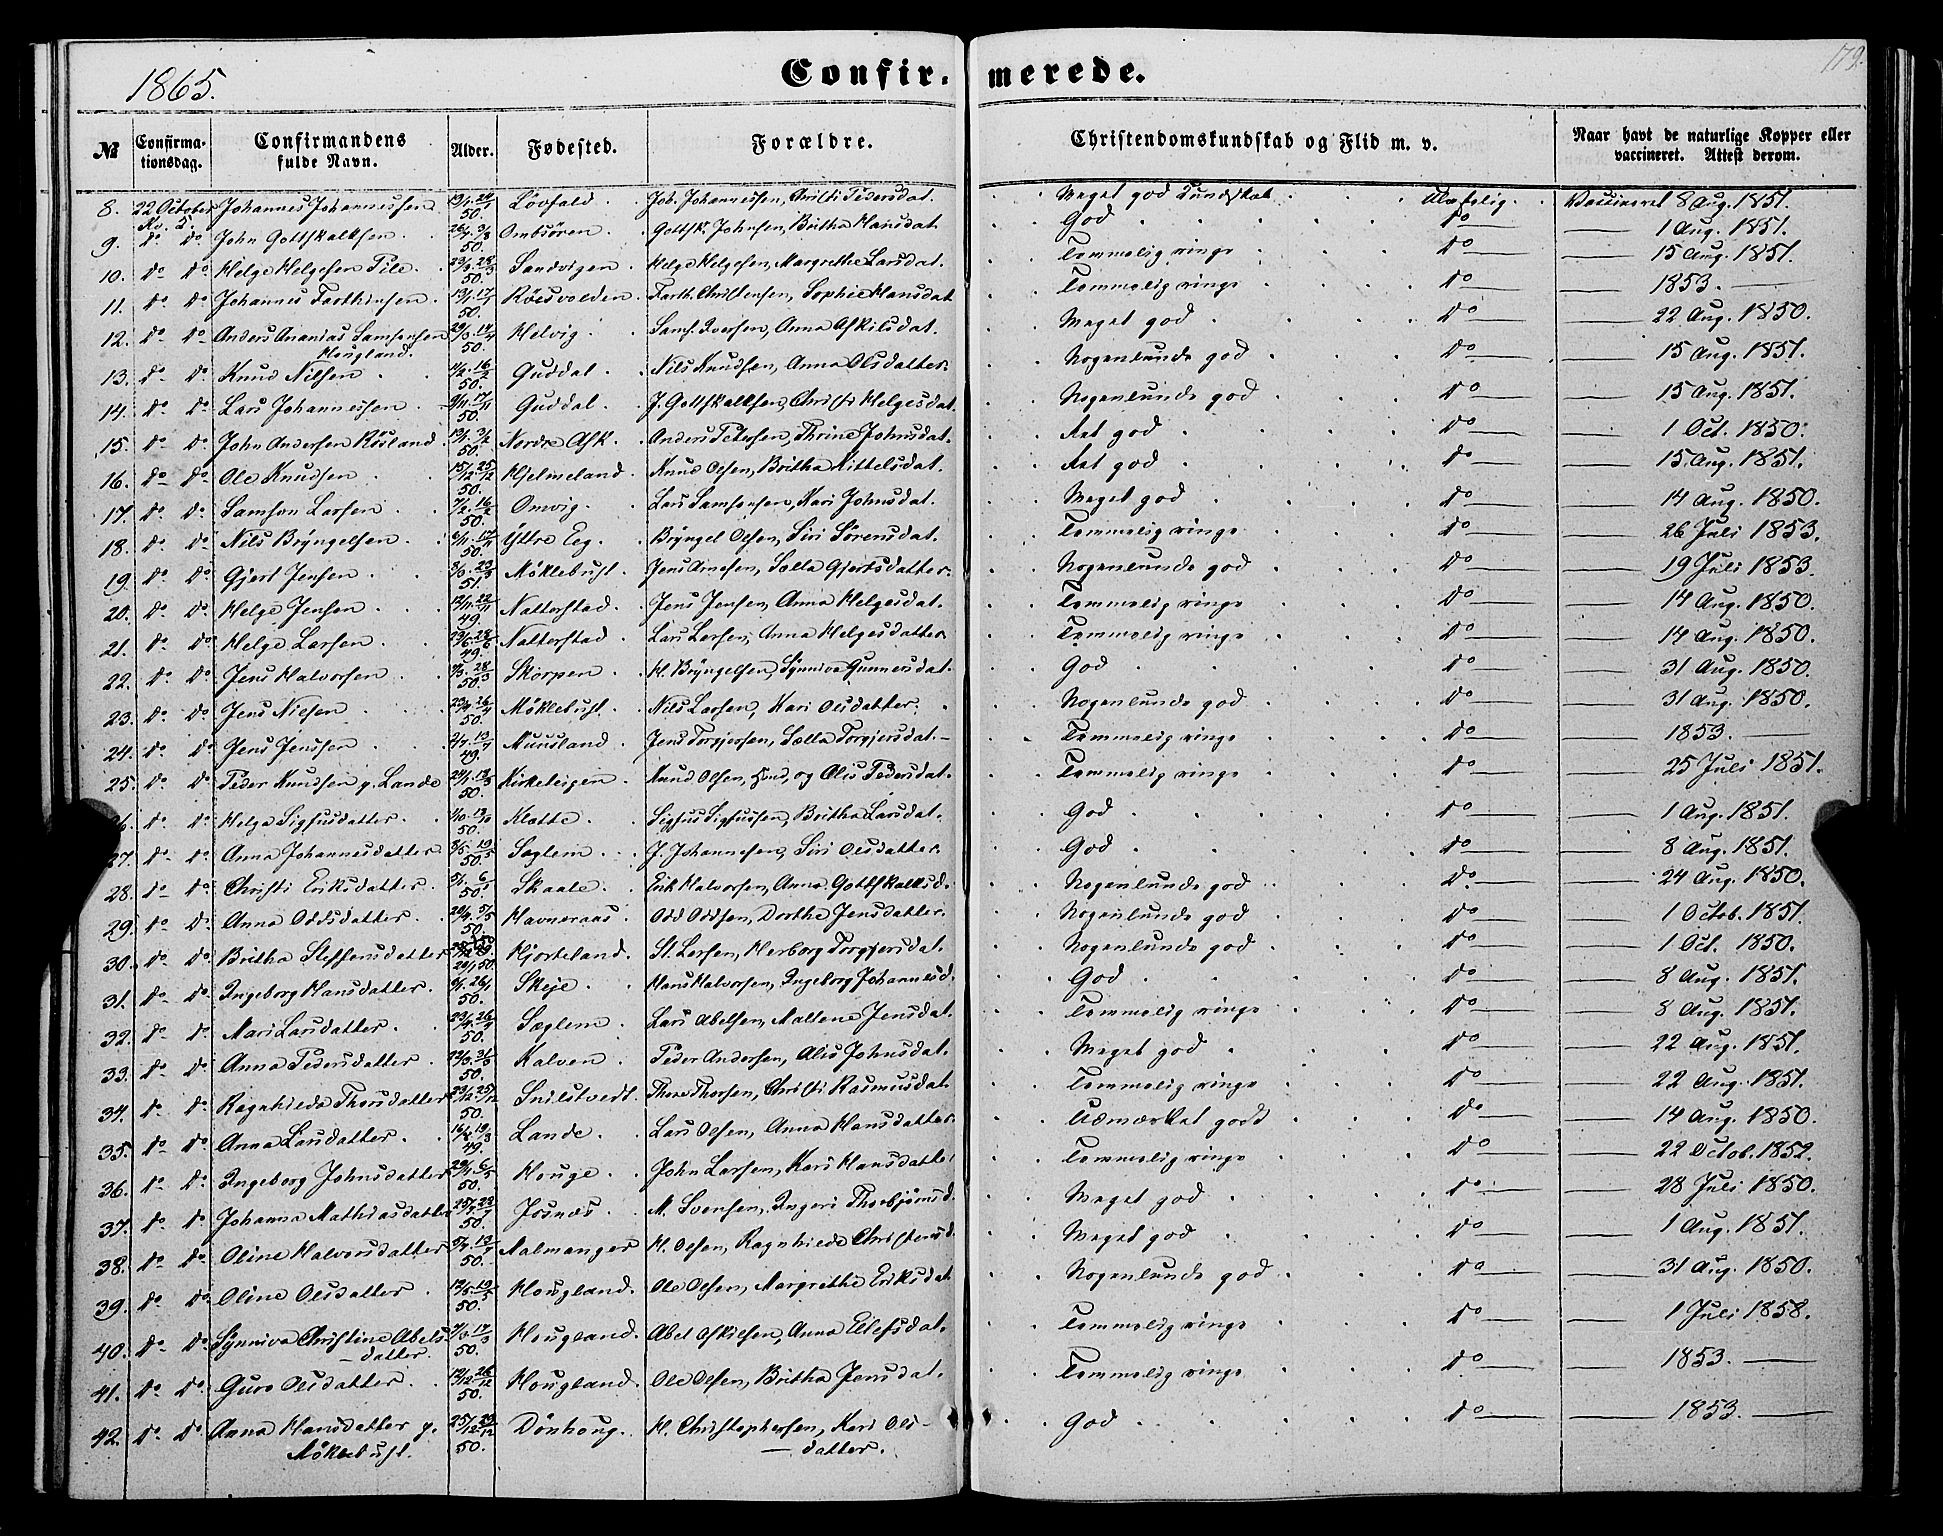 1865.
Confir-merede.
179.
№ Confirma-tionsdag. Confirmandens fulde Navn. Alder. Fødested. Forældre. Christendomskundskab og Flid m. v. Naar havt de naturlige Kopper eller vaccineret. Attest derom.
8. 22 October Johannes Johannessen 50. Løvfald Joh. Johannessen, Christi Pedersdat. Meget god Kundskab Vaccineret 8 Aug. 1851.
9. do do John Gottskalksen 50. Gottsk. Johnsen, Britha Hansdat. God do 1 Aug. 1851.
10. do do Helge Helgesen 50. Sandvigen Helge Helgesen, Margrethe Larsdat. Temmelig ringe do 15 Aug. 1851.
11. do do Johannes Farthinsen 50. Farth. Christensen, Sophie Hansdat. Temmelig ringe do 1853.
12. do do Anders Ananias Samsonsen 50. Helvig Sams. Iversen, Anna Askilsdat. Meget god do 22 Aug. 1850.
Hougland.
13. do do Knud Nilsen 50. Guddal Nils Knudsen, Anna Olsdatter. Nogenlunde god do 15 Aug. 1851.
14. do do Lars Johannessen 50. Guddal J. Gottskalksen, Christi Helgesdat. Nogenlunde god do 15 Aug. 1851.
15. do do John Andersen Røsland 50. Nordre Ask. Anders Petersen, Thrine Johnsdat. Ret god do 1 Oct. 1850.
16. do do Ole Knudsen 50. Hjelmeland Knud Olsen, Britha Kittelsdat. Ret god do 15 Aug. 1851.
17. do do Samson Larsen 50. Omvig Lars Samsonsen, Kari Johnsdat. Meget god do 14 Aug. 1850.
18. do do Nils Bryngelsen 50. Yttre Eeg Bryngel Olsen, Siri Sørensdat. Temmelig ringe do 26 Juli 1853.
19. do do Gjert Jensen 51. Møklebust Jens Arnesen, Sælla Gjertsdatter. Nogenlunde god do 19 Juli 1853.
20. do do Helge Jensen 49. Natterstad Jens Jensen, Anna Helgesdat. Temmelig ringe do 14 Aug. 1850.
21. do do Helge Larsen 49. Natterstad Lars Larsen, Anna Helgesdatter Temmelig ringe do 14 Aug. 1850.
22. do do Jens Halvorsen 50. Skorpen H. Bryngelsen, Synniva Gunnersdat. God do 31 Aug. 1850.
23. do do Jens Nilsen 50. Møklebust Nils Larsen, Kari Olsdatter. Nogenlunde god do 31 Aug. 1850.
24. do do Jens Jenssen 49. Munsland Jens Torgjersen, Sælla Torgjersdat. Temmelig ringe do 1853.
25. do do Peder Knudsen g. Lande 50. Kirketeigen Knud Olsen, og Olis Pedersdat. Temmelig ringe do 25 Juli 1851.
26. do do Helga Sigfusdatter 50. Klette Sigfus Sigfussen, Britha Larsdat. God do 1 Aug. 1851.
27. do do Anna Johannesdatter 50. Seglem J. Johannesen, Siri Olsdatter God do 8 Aug. 1851.
28. do do Christi Eriksdatter 50. Skaale Erik Halvorsen, Anna Gottskalksd. Nogenlunde god do 24 Aug. 1850.
29. do do Anna Oddsdatter 50. Havneraas Odd Oddsen, Dorthe Jensdatter. Nogenlunde god do 1 Octob. 1851.
30. do do Britha Steffensdatter 50. Hjorteland St. Larsen, Herborg Torgjersdat. Nogenlunde god do 1 Oct. 1850.
31. do do Ingeborg Hansdatter 50. Skeje Hans Halvorsen, Ingeborg Johannesd. God do 8 Aug. 1851.
32. do do Mari Larsdatter 50. Seglem Lars Abelsen, Maltena Jensdat. Temmelig ringe do 8 Aug. 1851.
33. do do Anna Pedersdatter 50. Kalven Peder Andersen, Alis Johnsdat. Meget god do 22 Aug. 1851.
34. do do Ragnhilde Thorsdatter 50. Snilstvedt Thore Thorsen, Christi Rasmusdat. Temmelig ringe do 22 Aug. 1851.
35. do do Anna Larsdatter 49. Lande Lars Olsen, Anna Hansdatter Udmærket godt do 14 Aug. 1850.
36. do do Ingeborg Johnsdatter 50. Houge John Larsen, Kari Hansdatter Temmelig ringe do 22 Octob. 1851.
37. do do Johanna Mathiasdatter 50. Josnæs M. Svensen, Ingeri Thorbjørnsd. Meget god do 28 Juli 1850.
38. do do Oline Halvorsdatter 50. Aalmanger H. Olsen, Ragnhilde Christensd. Meget god do 1 Aug. 1851.
39. do do Oline Olsdatter 50. Hougland. Ole Olsen, Margrethe Eriksdat. Nogenlunde god do 31 Aug. 1850.
40. do do Synniva Christine Abels-50. Hougland. Abel Askilsen, Anna Ellefsdat. Temmelig ringe do 1 Juli 1858.
datter.
41. do do Guro Olsdatter 50. Hougland. Ole Olsen, Britha Jensdat. Temmelig ringe do 1853.
42. do do Anna Hansdatter g. 50. Dönhoug. H. Christophersen, Kari Ols- God do 1853.
Møklebust. datter.